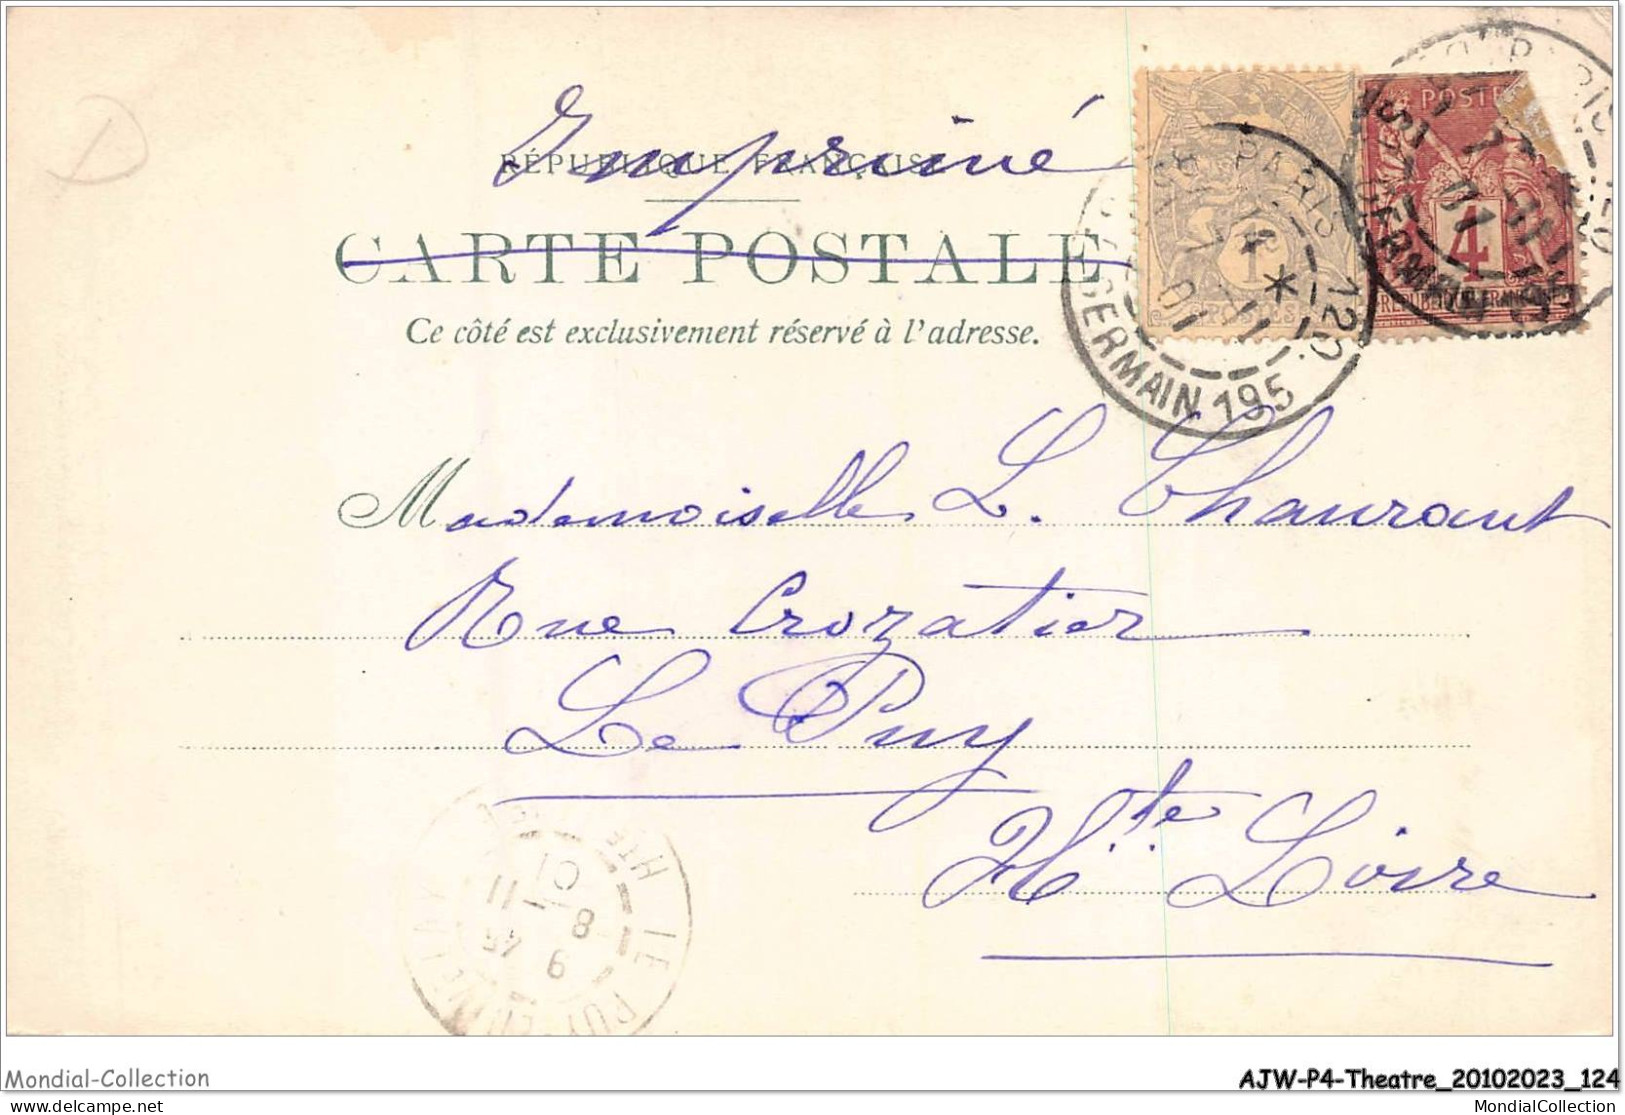 D
Imprimé
RÉPUBLIQUE FRANÇAISE
CARTE POSTALE
Ce côté est exclusivement réservé à l'adresse.
POSTES
1
POSTES
4
REPUBLIQUE FRANÇAISE
PARIS
GERMAIN 195
GERMAIN 195
Mademoiselle L. Chaurant
Rue Crozatier
Le Puy
Hte Loire
LE PUY
HTE
11 8
01
Mondial-Collection
AJW-P4-Theatre_20102023_124
delcampe.net
MondialCollection